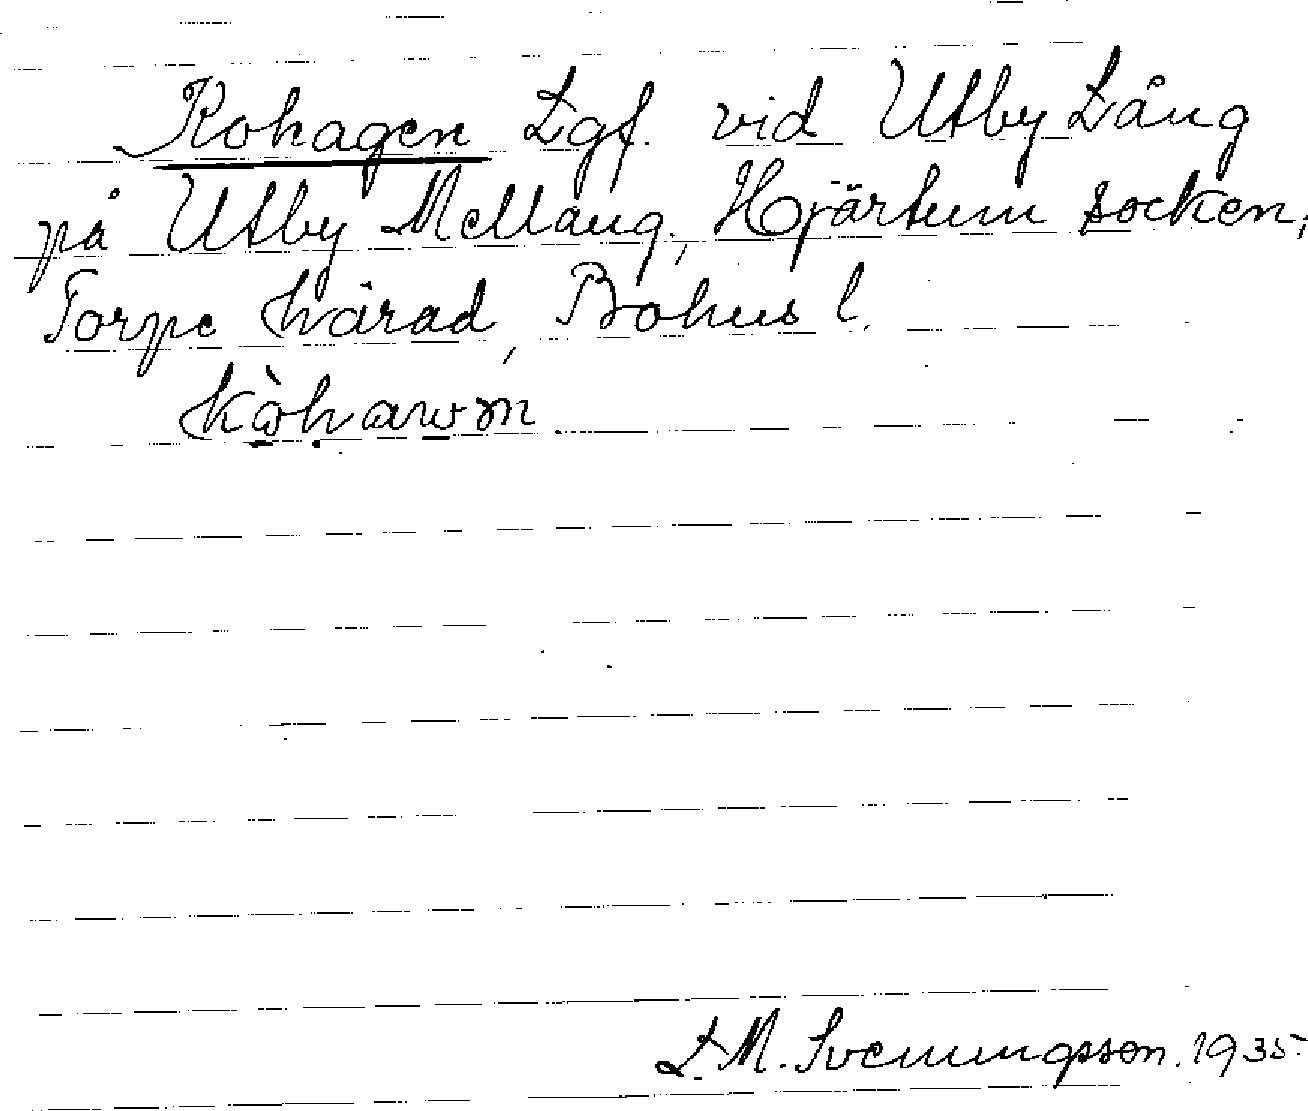 Kohagen Lgf. vid Utby Lång
på Utby Mellang., Hjärtum socken,
Torpe härad, Bohus l.
kòhawən
L. M. Svenningsson. 1935.